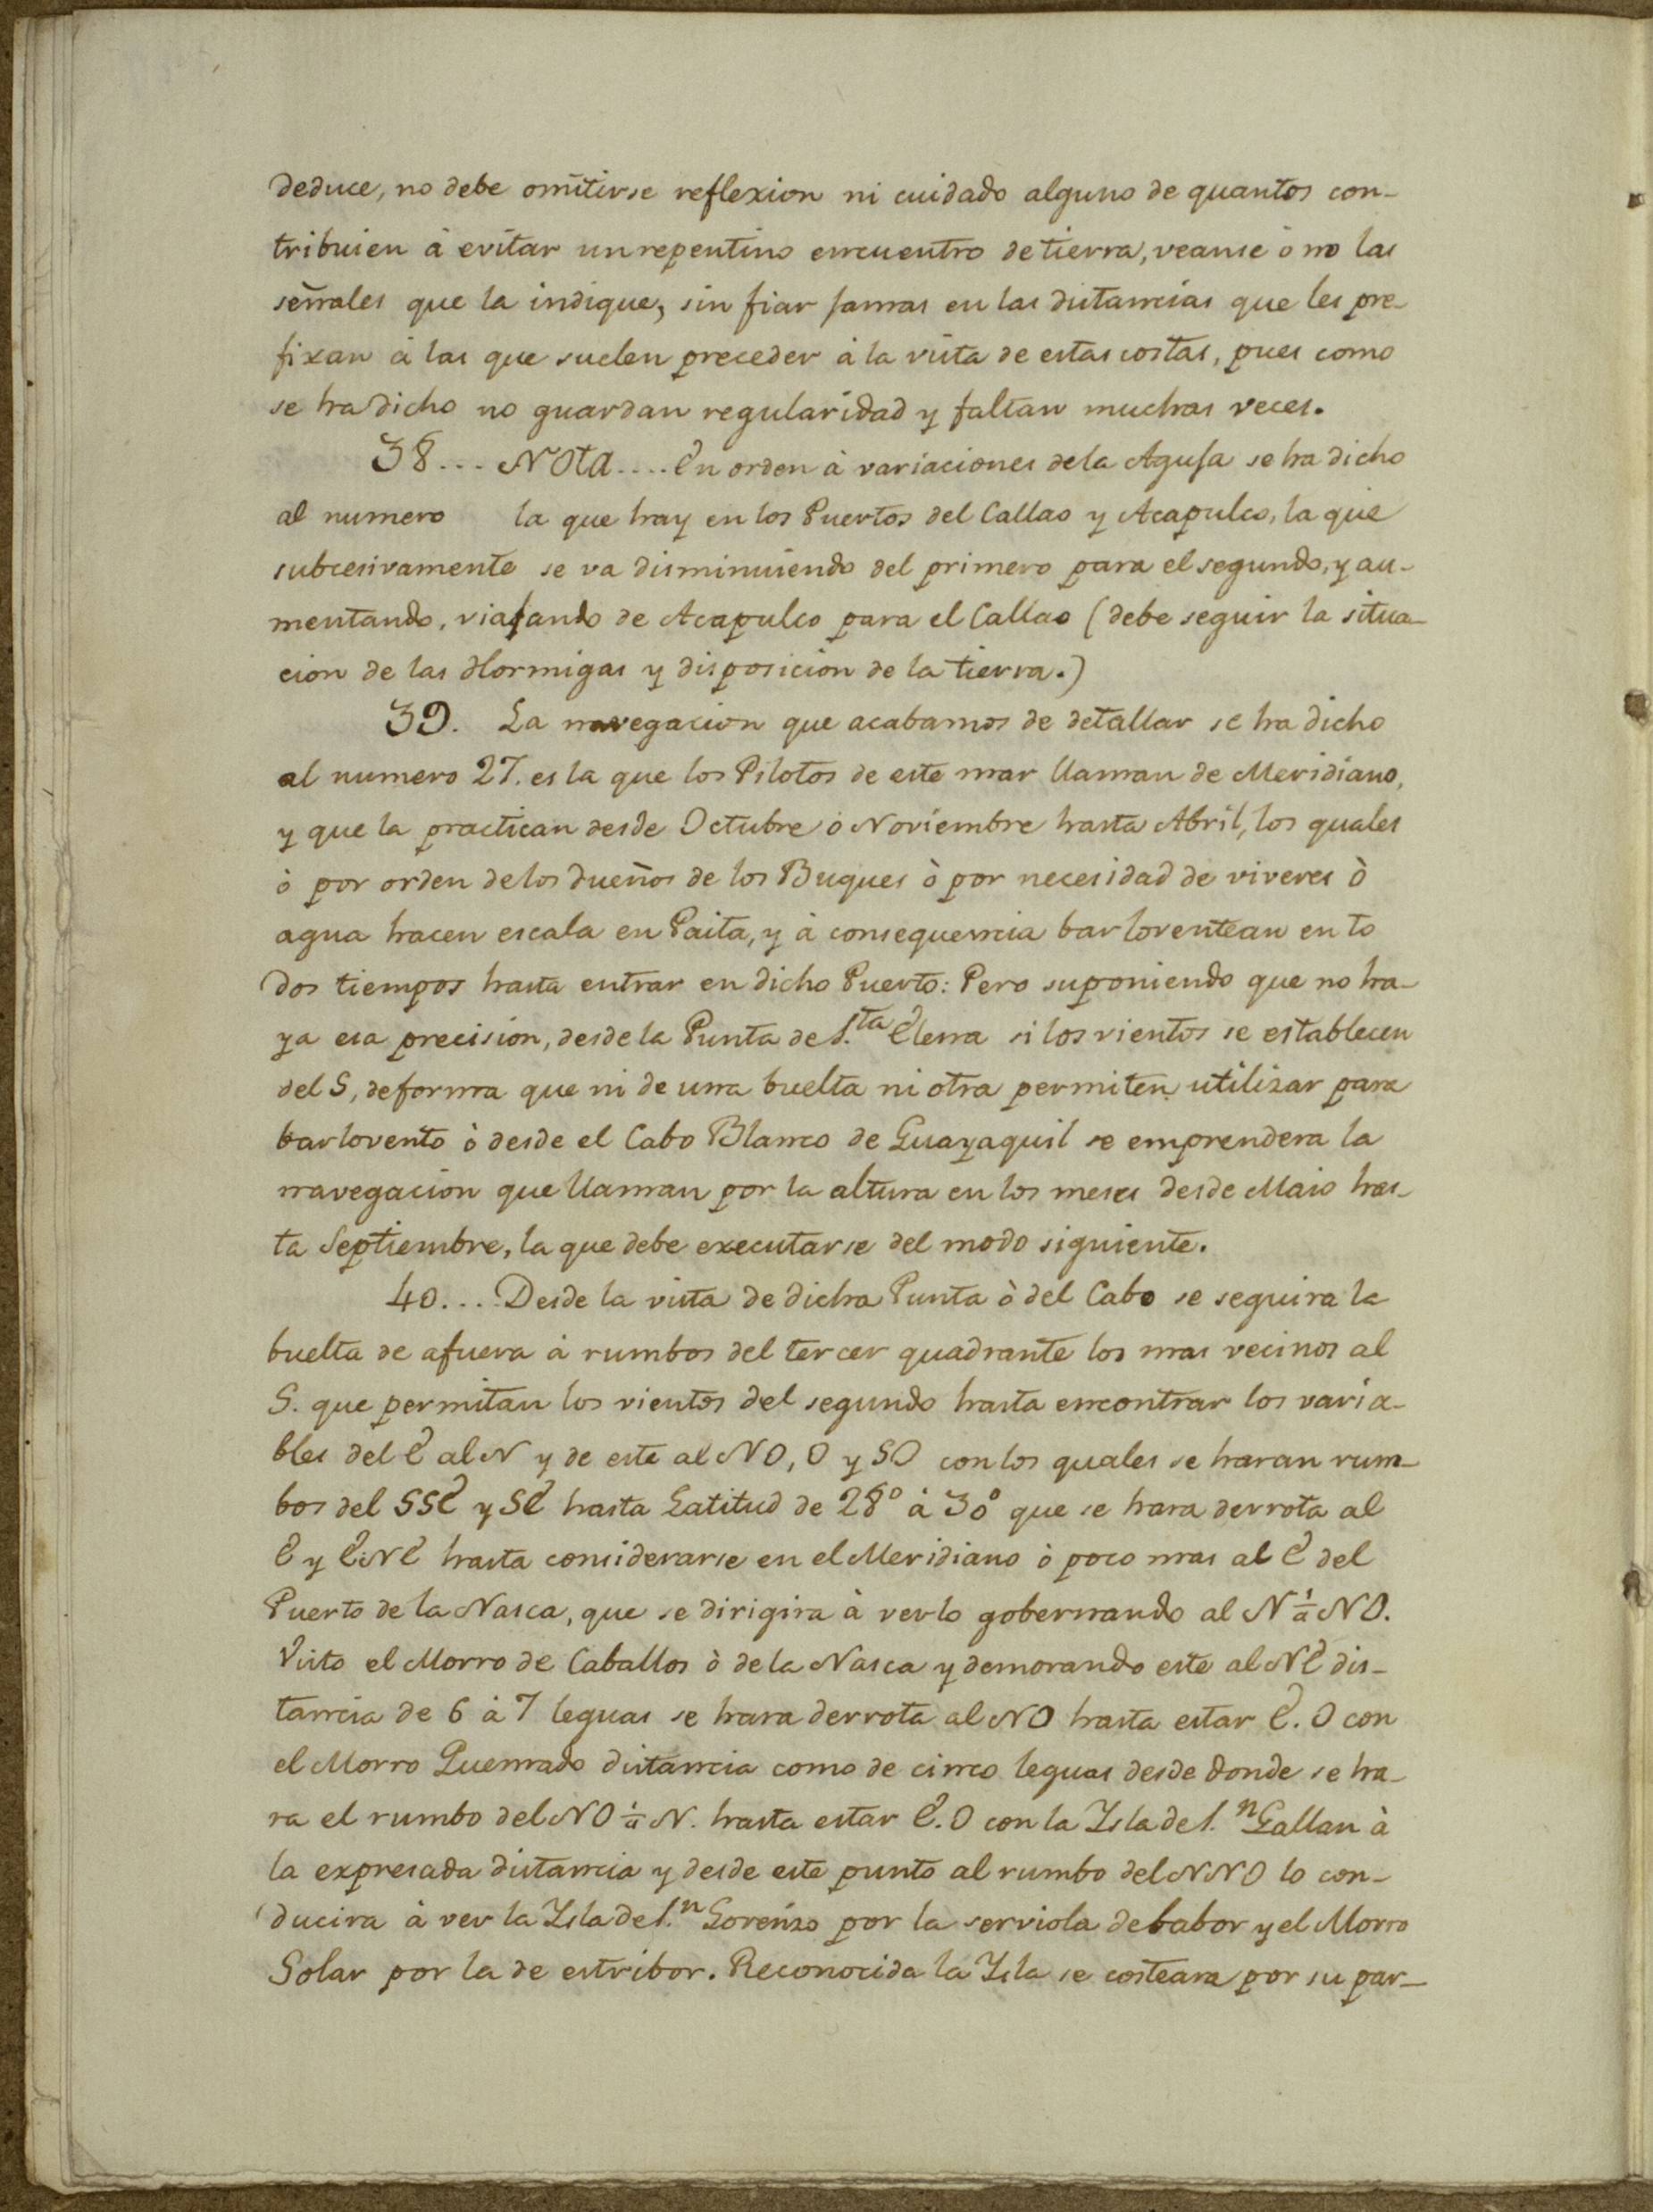 deduce, no debe omitirse reflexion ni cuidado alguno de quantos con-
tribuien à evitar un repentino encuentro de tierra, veanse ò no las
señales que la indique, sin fiar jamas en las distancias que les pre-
fixan à las que suelen preceder à la vista de estas costas, pues como
se ha dicho no guardan regularidad y faltan muchas veces.
38... Nota.... En orden à variaciones de la Aguja se ha dicho
al numero la que hay en los Puertos del Callao y Acapulco, la que
subcesivamente se va disminuiendo del primero para el segundo, y au-
mentando, viajando de Acapulco para el Callao (debe seguir la situa-
cion de las Hormigas y disposicion de la tierra.)
39. La navegacion que acabamos de detallar se ha dicho
al numero 27. es la que los Pilotos de este mar llaman de Meridiano,
y que la practican desde Octubre ò Noviembre hasta Abril, los quales
ò por orden de los dueños de los Buques ò por necesidad de viveres ò
agua hacen escala en Paita, y à consequencia barloventean en to
dos tiempos hasta entrar en dicho Puerto: Pero suponiendo que no ha-
ya esa precision, desde la Punta de S.ta Elena si los vientos se establecen
del S, de forma que ni de una buelta ni otra permiten utilizar para
barlovento ò desde el Cabo Blanco de Guayaquil se emprendera la
navegacion que llaman por la altura en los meses desde Maio has-
ta Septiembre, la que debe executarse del modo siguiente.
40... Desde la vista de dicha Punta ò del Cabo se seguira la
buelta de afuera à rumbos del tercer quadrante los mas vecinos al
S. que permitan los vientos del segundo hasta encontrar los varia-
bles del E al N y de este al NO, O y SO con los quales se haran rum-
bos del SSE y SE hasta Latitud de 28° à 30° que se hara derrota al
E y ENE hasta considerarse en el Meridiano ò poco mas al E del
Puerto de la Nasca, que se dirigira à verlo gobernando al N 1/a NO.
Visto el Morro de Caballos ò de la Nasca y demorando este al NE dis-
tancia de 6 à 7 leguas se hara derrota al NO hasta estar E. O con
el Morro Quemado distancia como de cinco leguas desde donde se ha-
ra el rumbo del NO 1/a N. hasta estar E. O con la Ysla de S.n Gallan à
la expresada distancia y desde este punto al rumbo del NNO lo con-
ducira à ver la Ysla de S.n Lorenzo por la serviola de babor y el Morro
Solar por la de estribor. Reconocida la Ysla se costeara por su par-